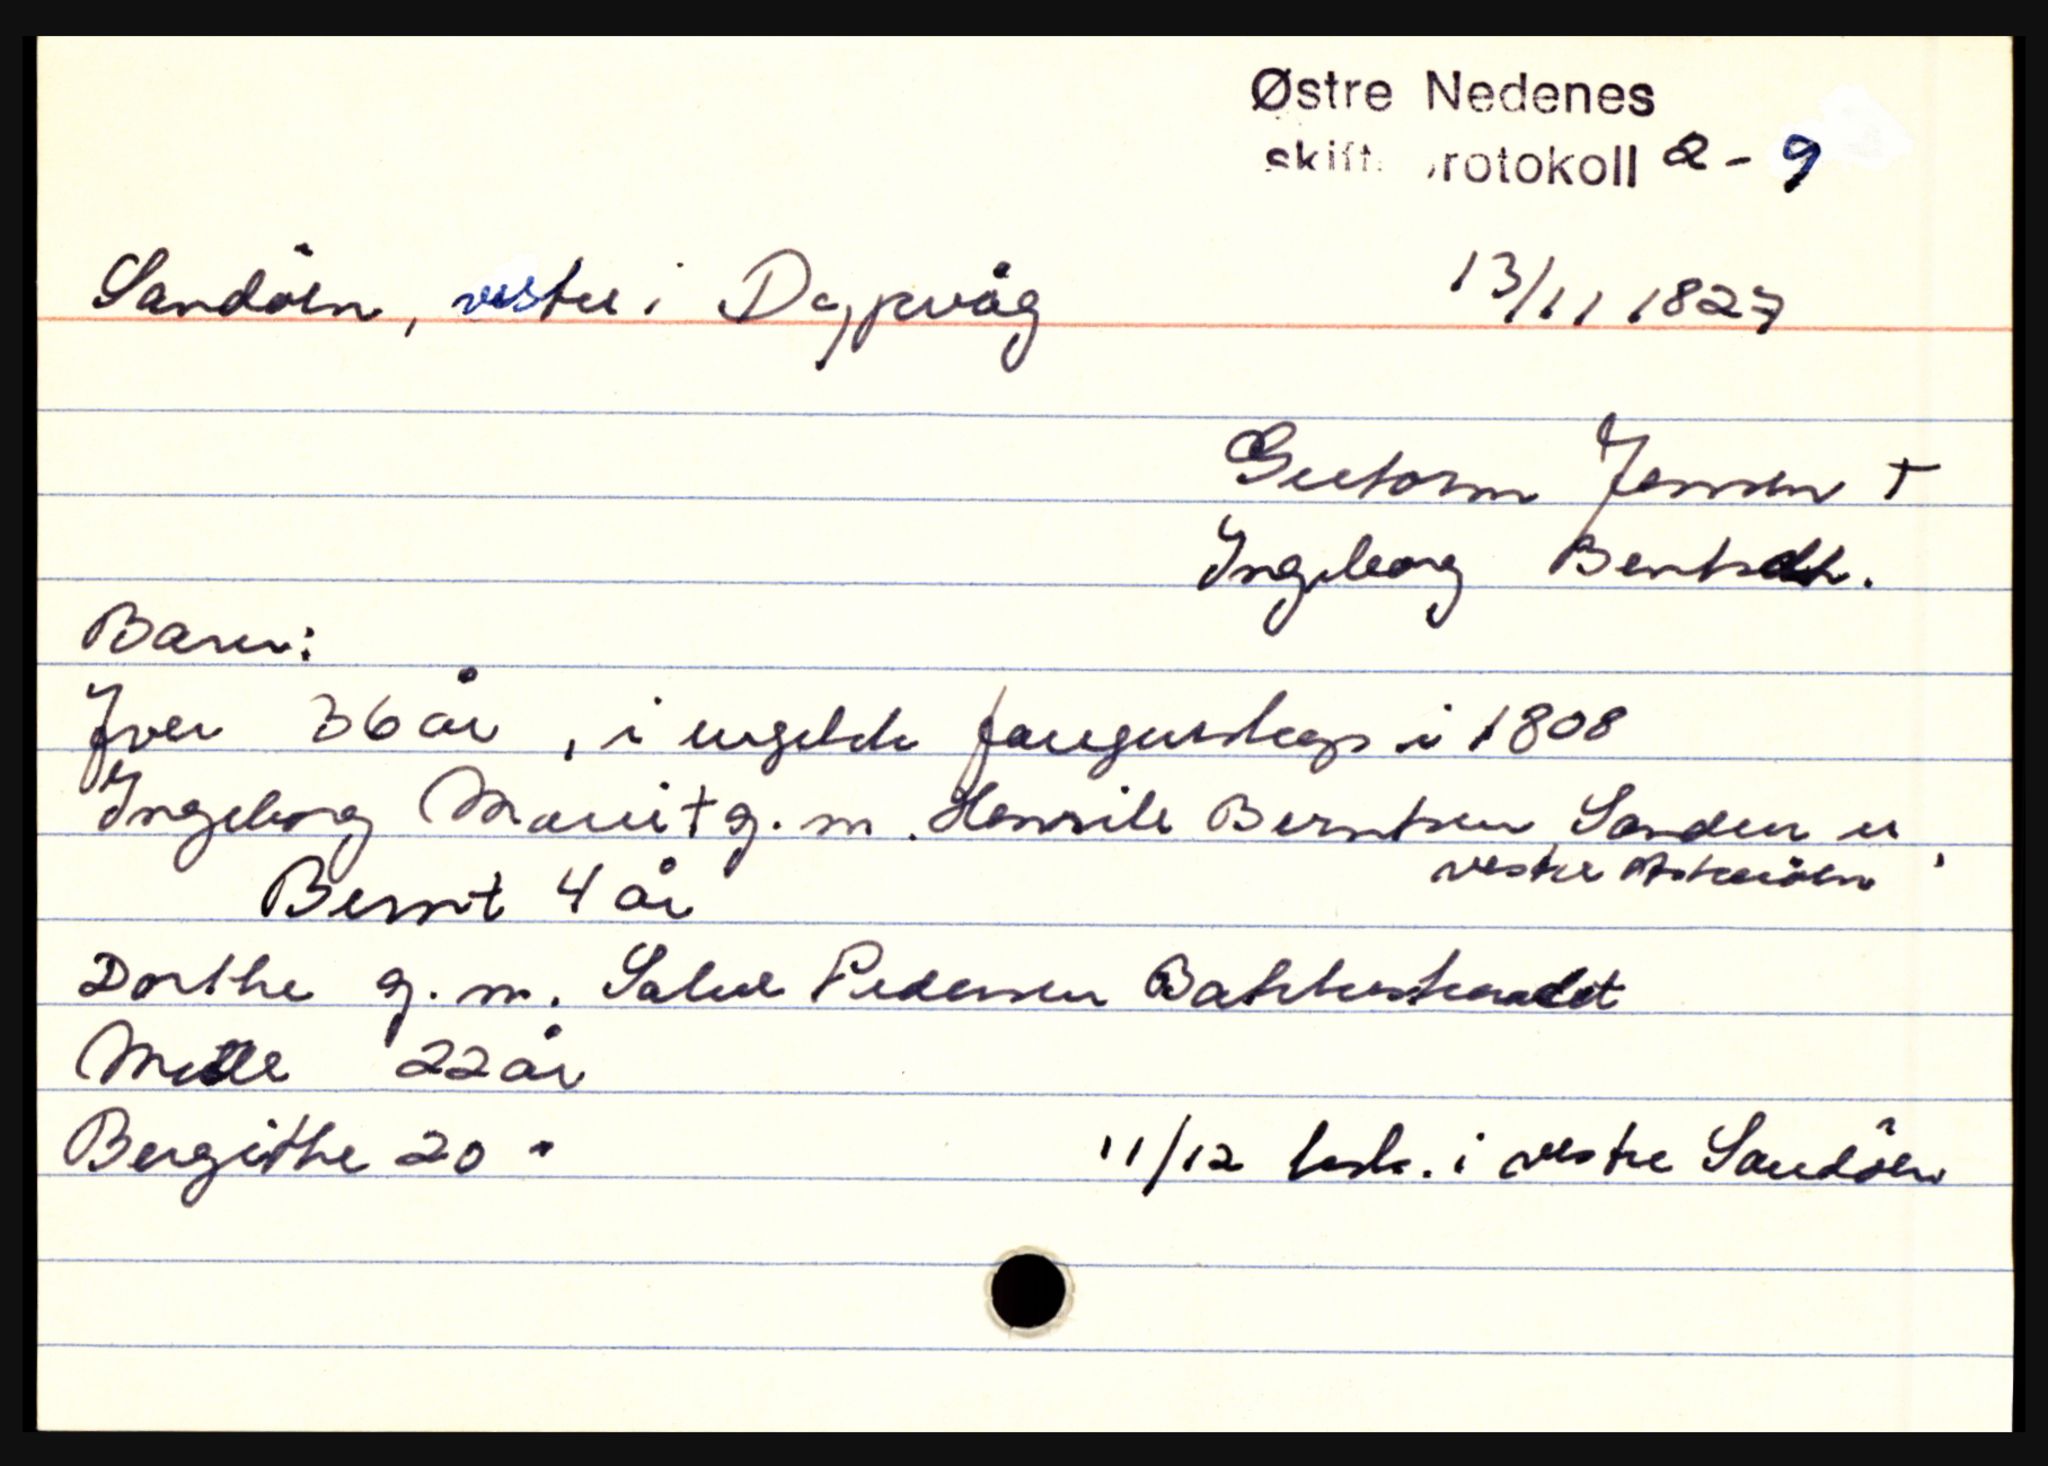 Østre Nedenes
skifteprotokoll 2-9
Sandöen, vestre i Dypvåg 13/11 1827
Guttorm Jensen †
Ingeborg Bentsdtr.
Barn:
Iver 36 år, i engelsk fangenskap i 1808
Ingeborg Marie † g. m. Henrik Berntsen Sanden
vestre Askeröen
Bernt 4 år
Dorthe g. m. Salve Pedersen Bakkeskaadet
Mette 22 år
Bergithe 20 "
11/12 besk. i vestre Sandöen